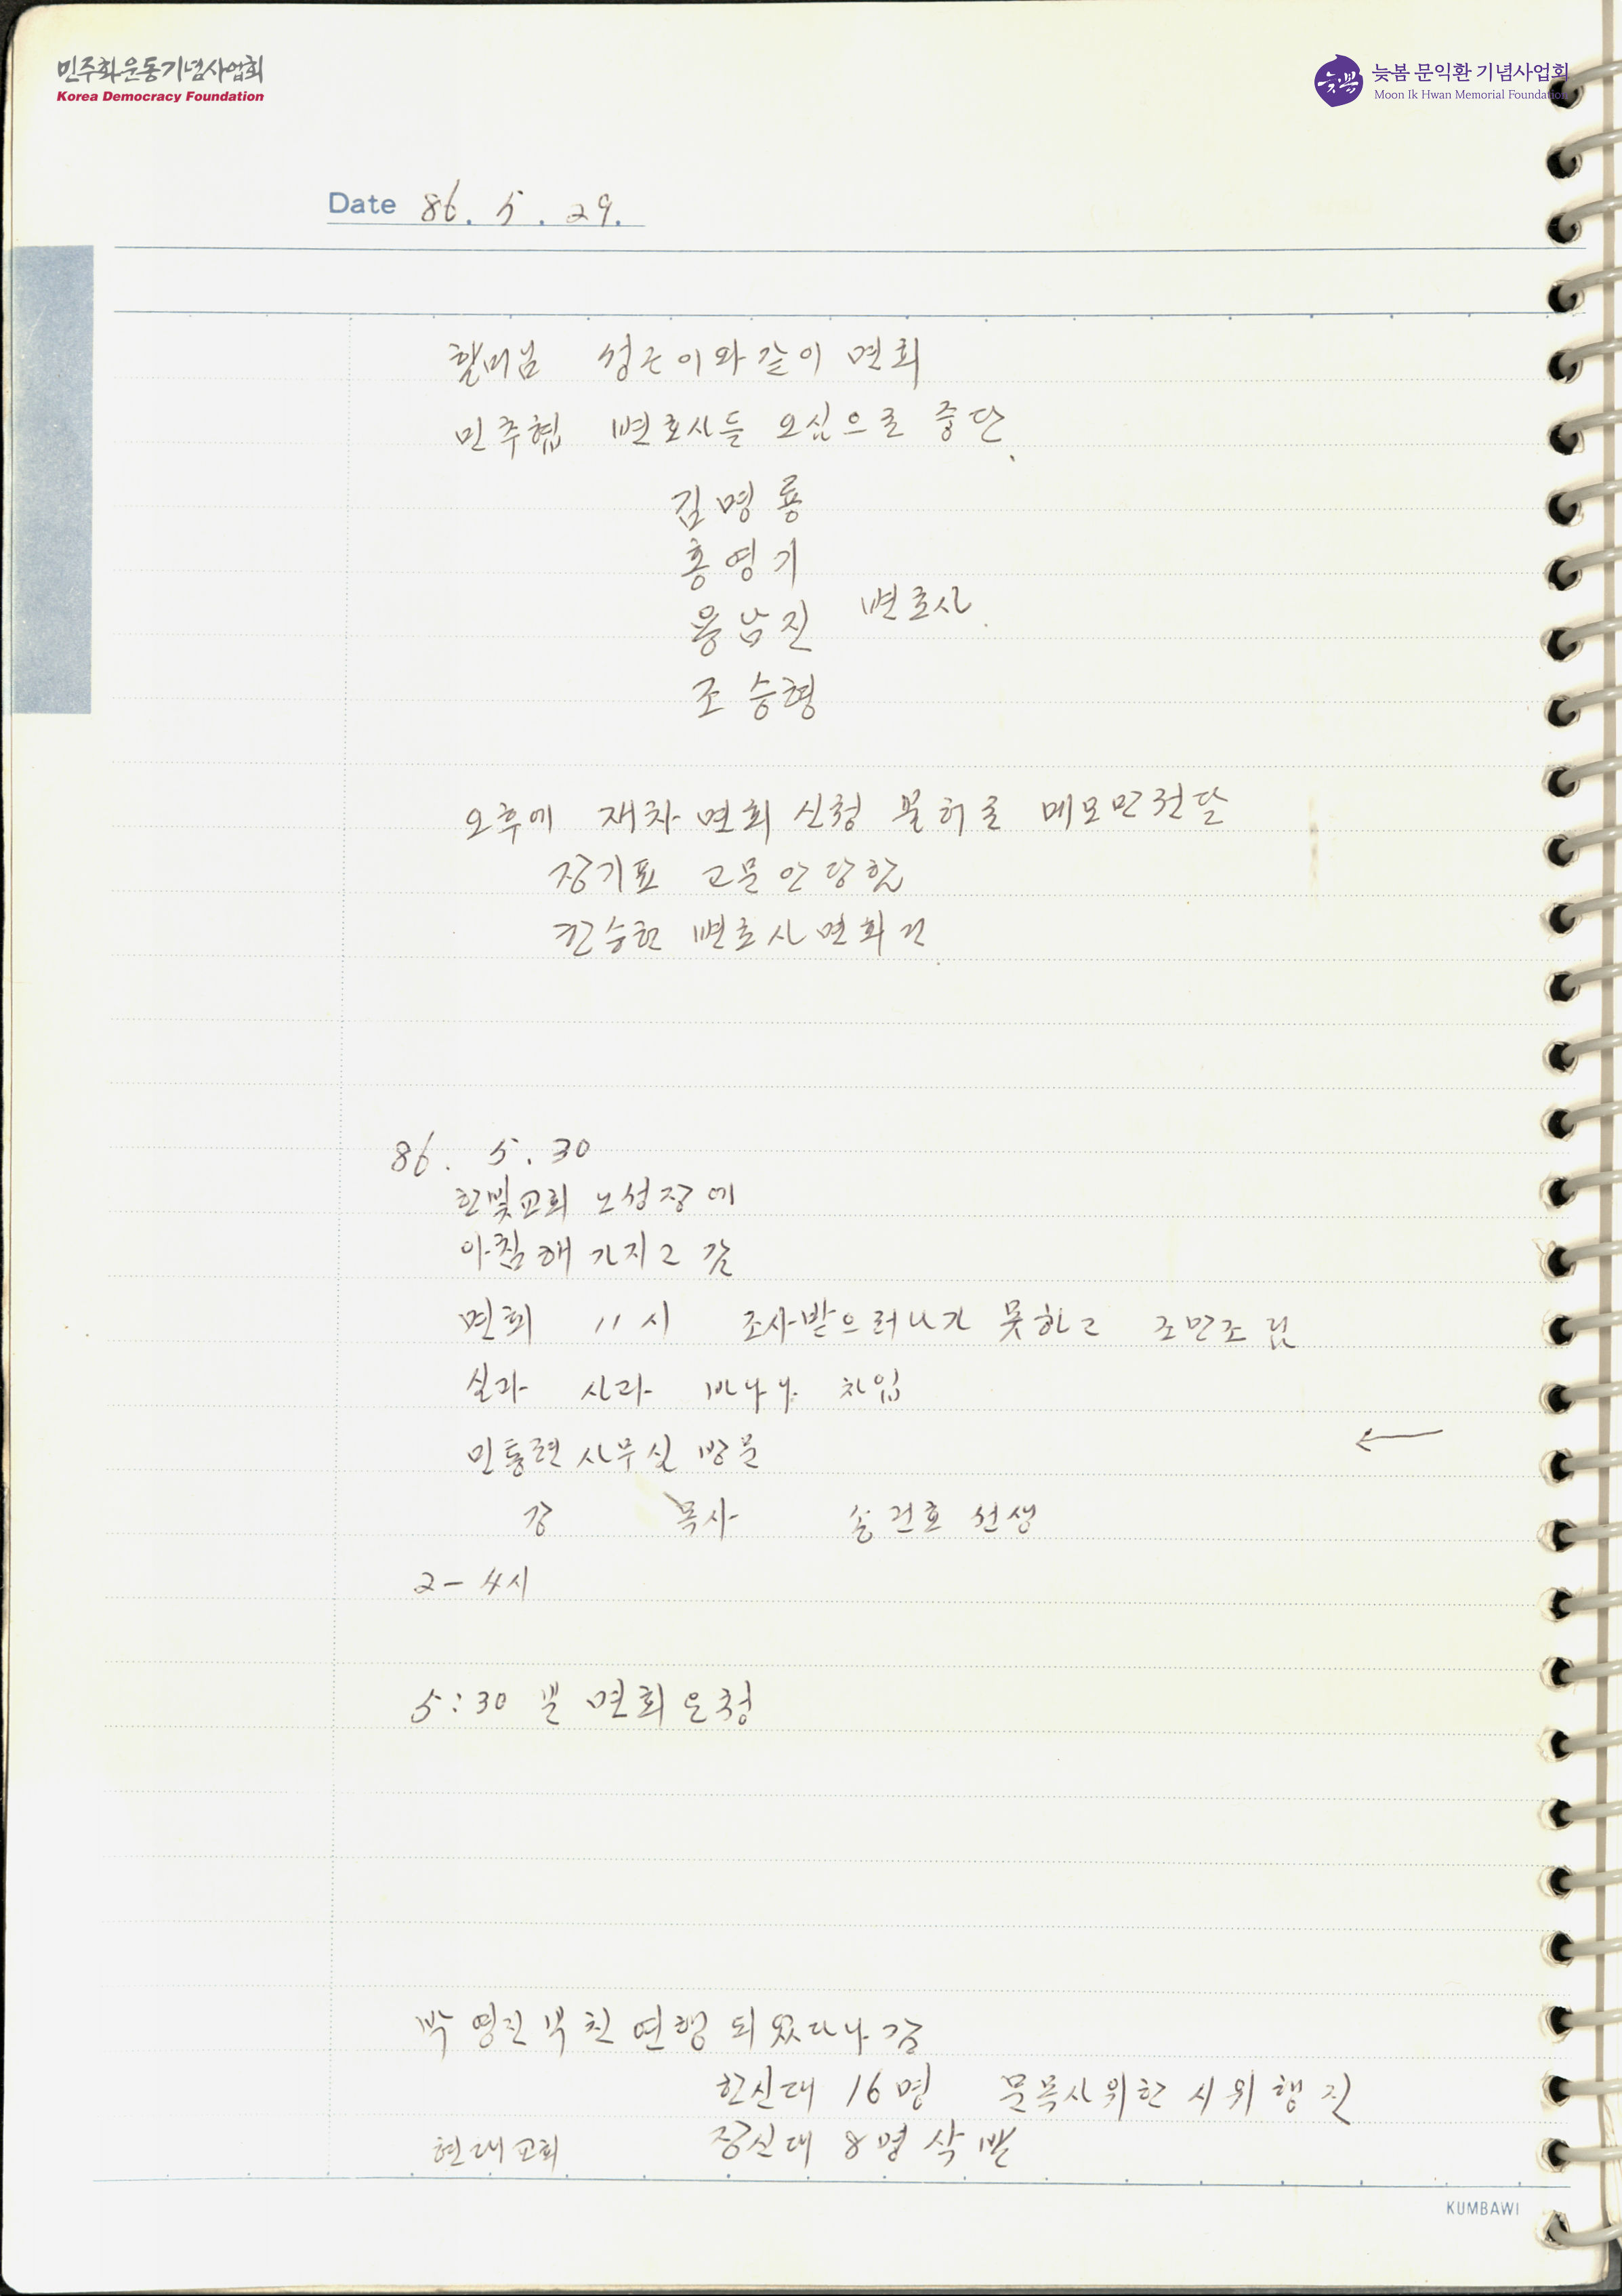 민주화운동기념사업회
Korea Democracy Foundation
늦봄 문익환 기념사업회
Moon Ik Hwan Memorial Foundation
Date 86. 5. 29.
할머님 성근이와 같이 면회
민주협 변호사들 오심으로 중단
김명룡
홍영기
용남진 변호사
조승형
오후에 재차 면회 신청 불허로 메모만 전달
장기표 고문 안 당함
한승헌 변호사 면회건
86. 5. 30
한빛교회 농성장에
아침해 가지고 감
면회 11시 조사받으러 나가 못하고
실과 사과 바나나 차입
민통련 사무실 방문
강 목사 송건호 선생
2-4시
5:30분 면회 요청
박영진 부친 연행 되었다나 감
한신대 16명 문목사 위한 시위 행진
현대교회 장신대 8명 삭발
KUMBAWI